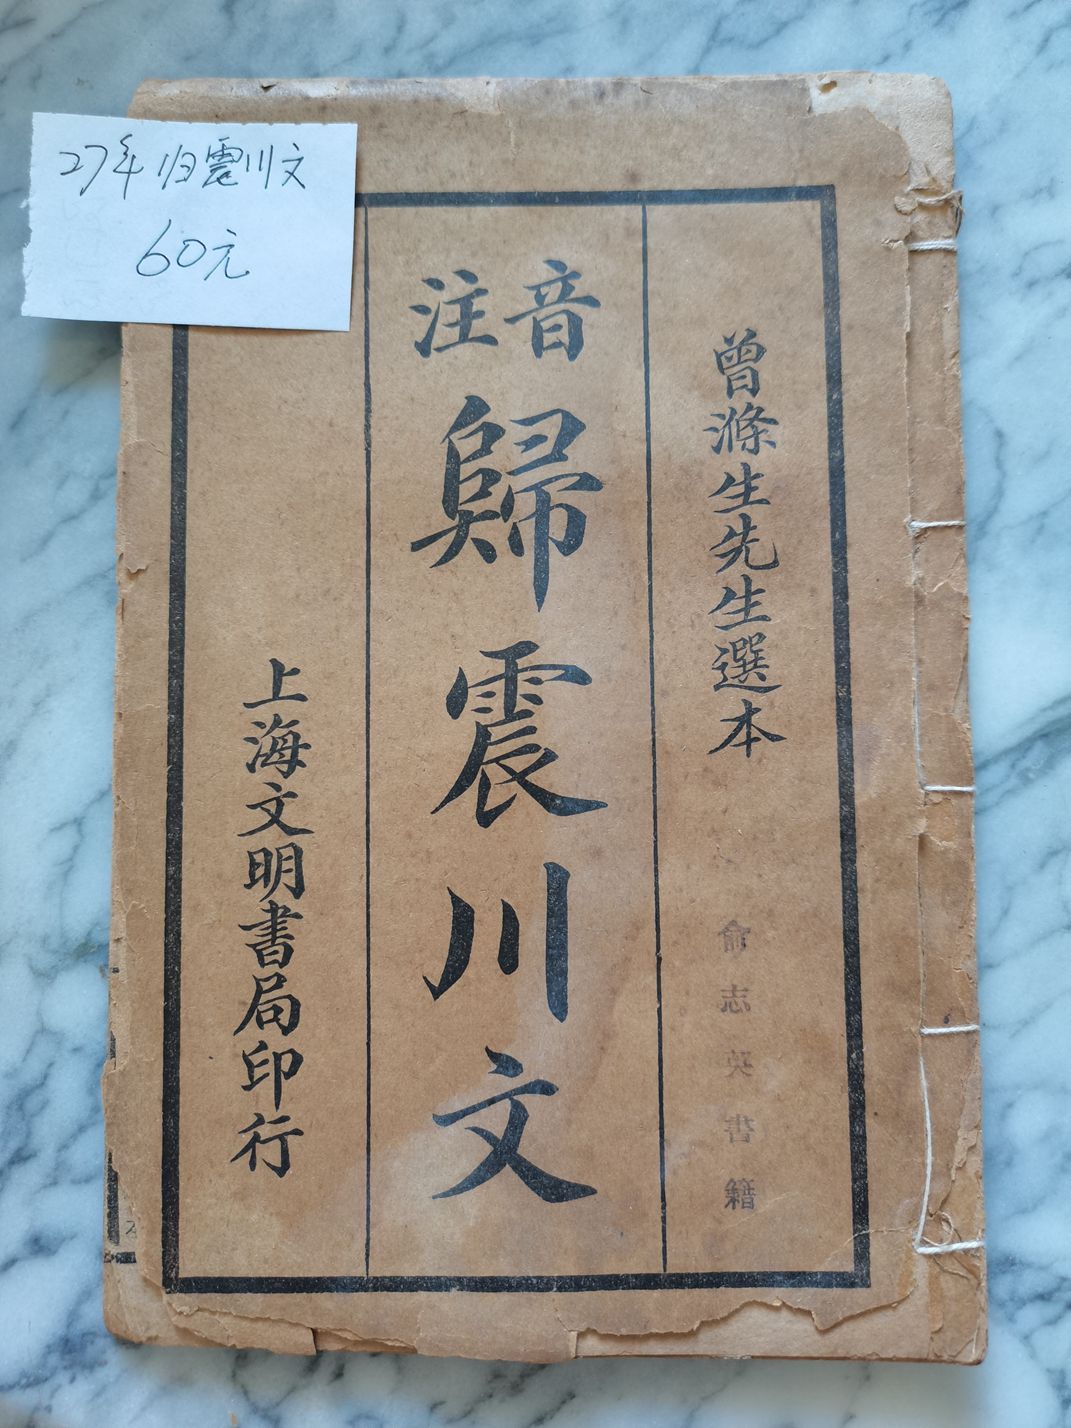 27年归震川文
60元
曾滌生先生選本
俞志英書籍
音注
歸震川文
上海文明書局印行